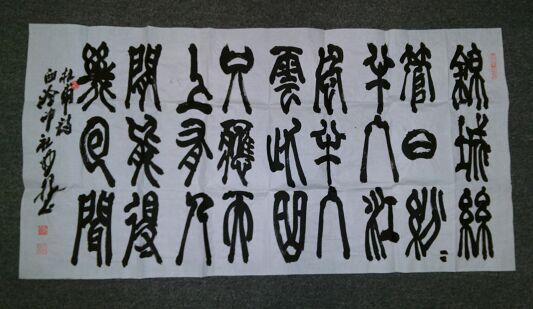 錦城絲
管日紛〻
半入江
風半入
雲此曲
只應天
上有人
間能得
幾回聞
杜甫詩
西泠印社